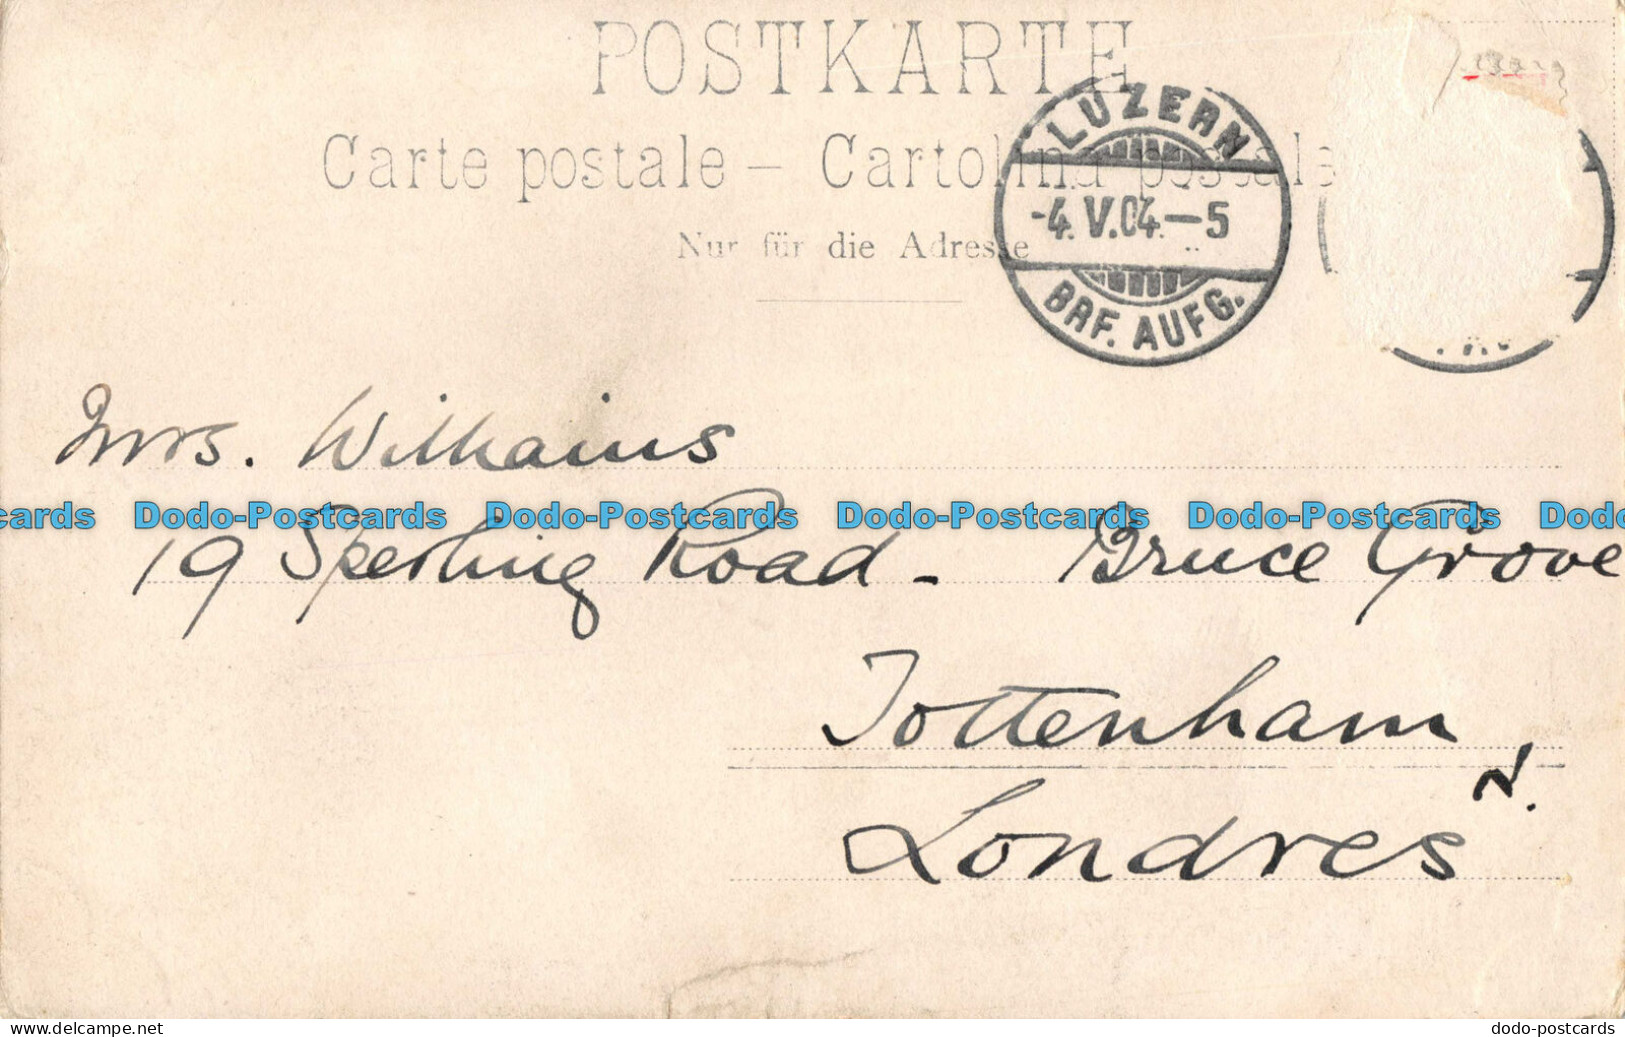 POSTKARTE
Carte postale – Cartolina postale
Nur für die Adresse
LUZERN
-4. V.04.—5
BRF. AUFG.
Mrs. Williams
cards Dodo-Postcards Dodo-Postcards Dodo-Postcards Dodo-Postcards Dodo
19 Sperling Road - Bruce Grove
Tottenham
N.
Londres
www.delcampe.net
dodo-postcards